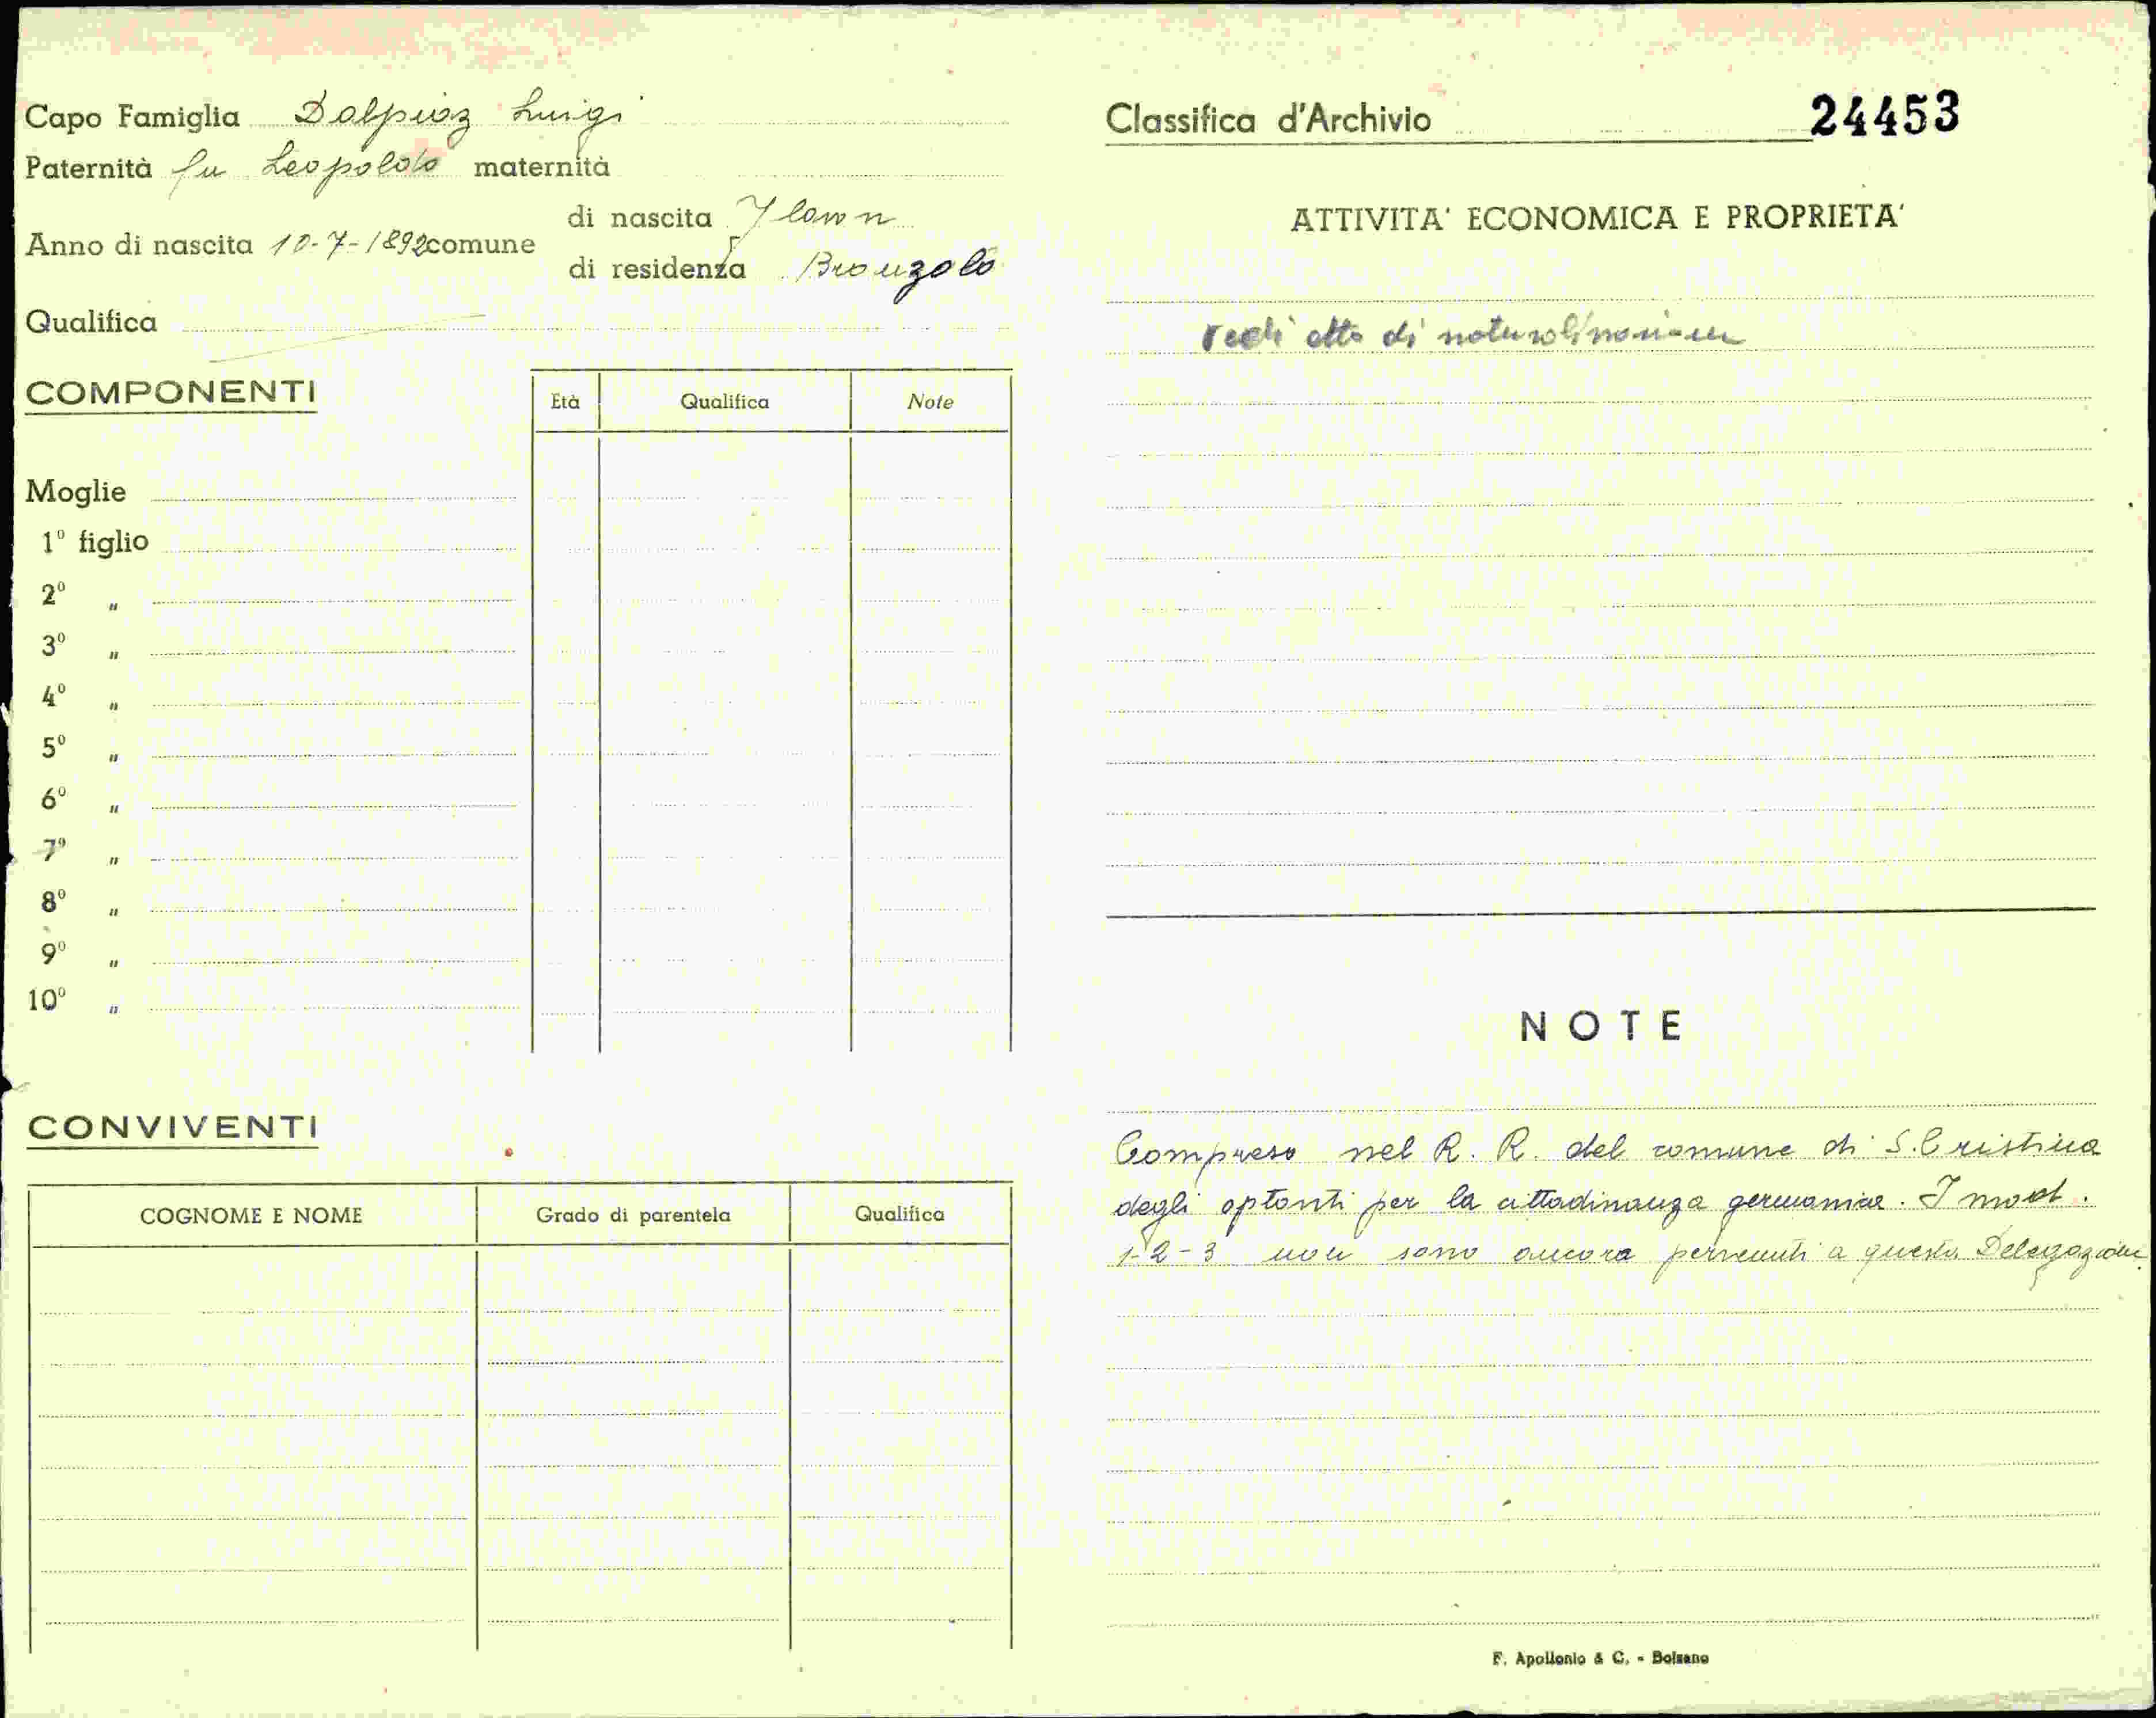 Capo Famiglia Dalpiaz Luigi
Paternità fu Leopoldo maternità
Anno di nascita 10-7-1892 comune
di nascita Flavon
di residenza Bronzolo
Qualifica
COMPONENTI
Età Qualifica Note
Moglie
1º figlio
2º "
3º "
4º "
5º "
6º "
7º "
8º "
9º "
10º "
CONVIVENTI
COGNOME E NOME Grado di parentela Qualifica
Classifica d'Archivio 24453
ATTIVITA' ECONOMICA E PROPRIETA'
vedi atto di
NOTE
Compreso nel R. R. del comune di S. Cristina
degli optanti per la cittadinanza germanica. I mod.
1-2-3 non sono ancora pervenuti a questa Delegazione
F. Apollonio & C. - Bolzano